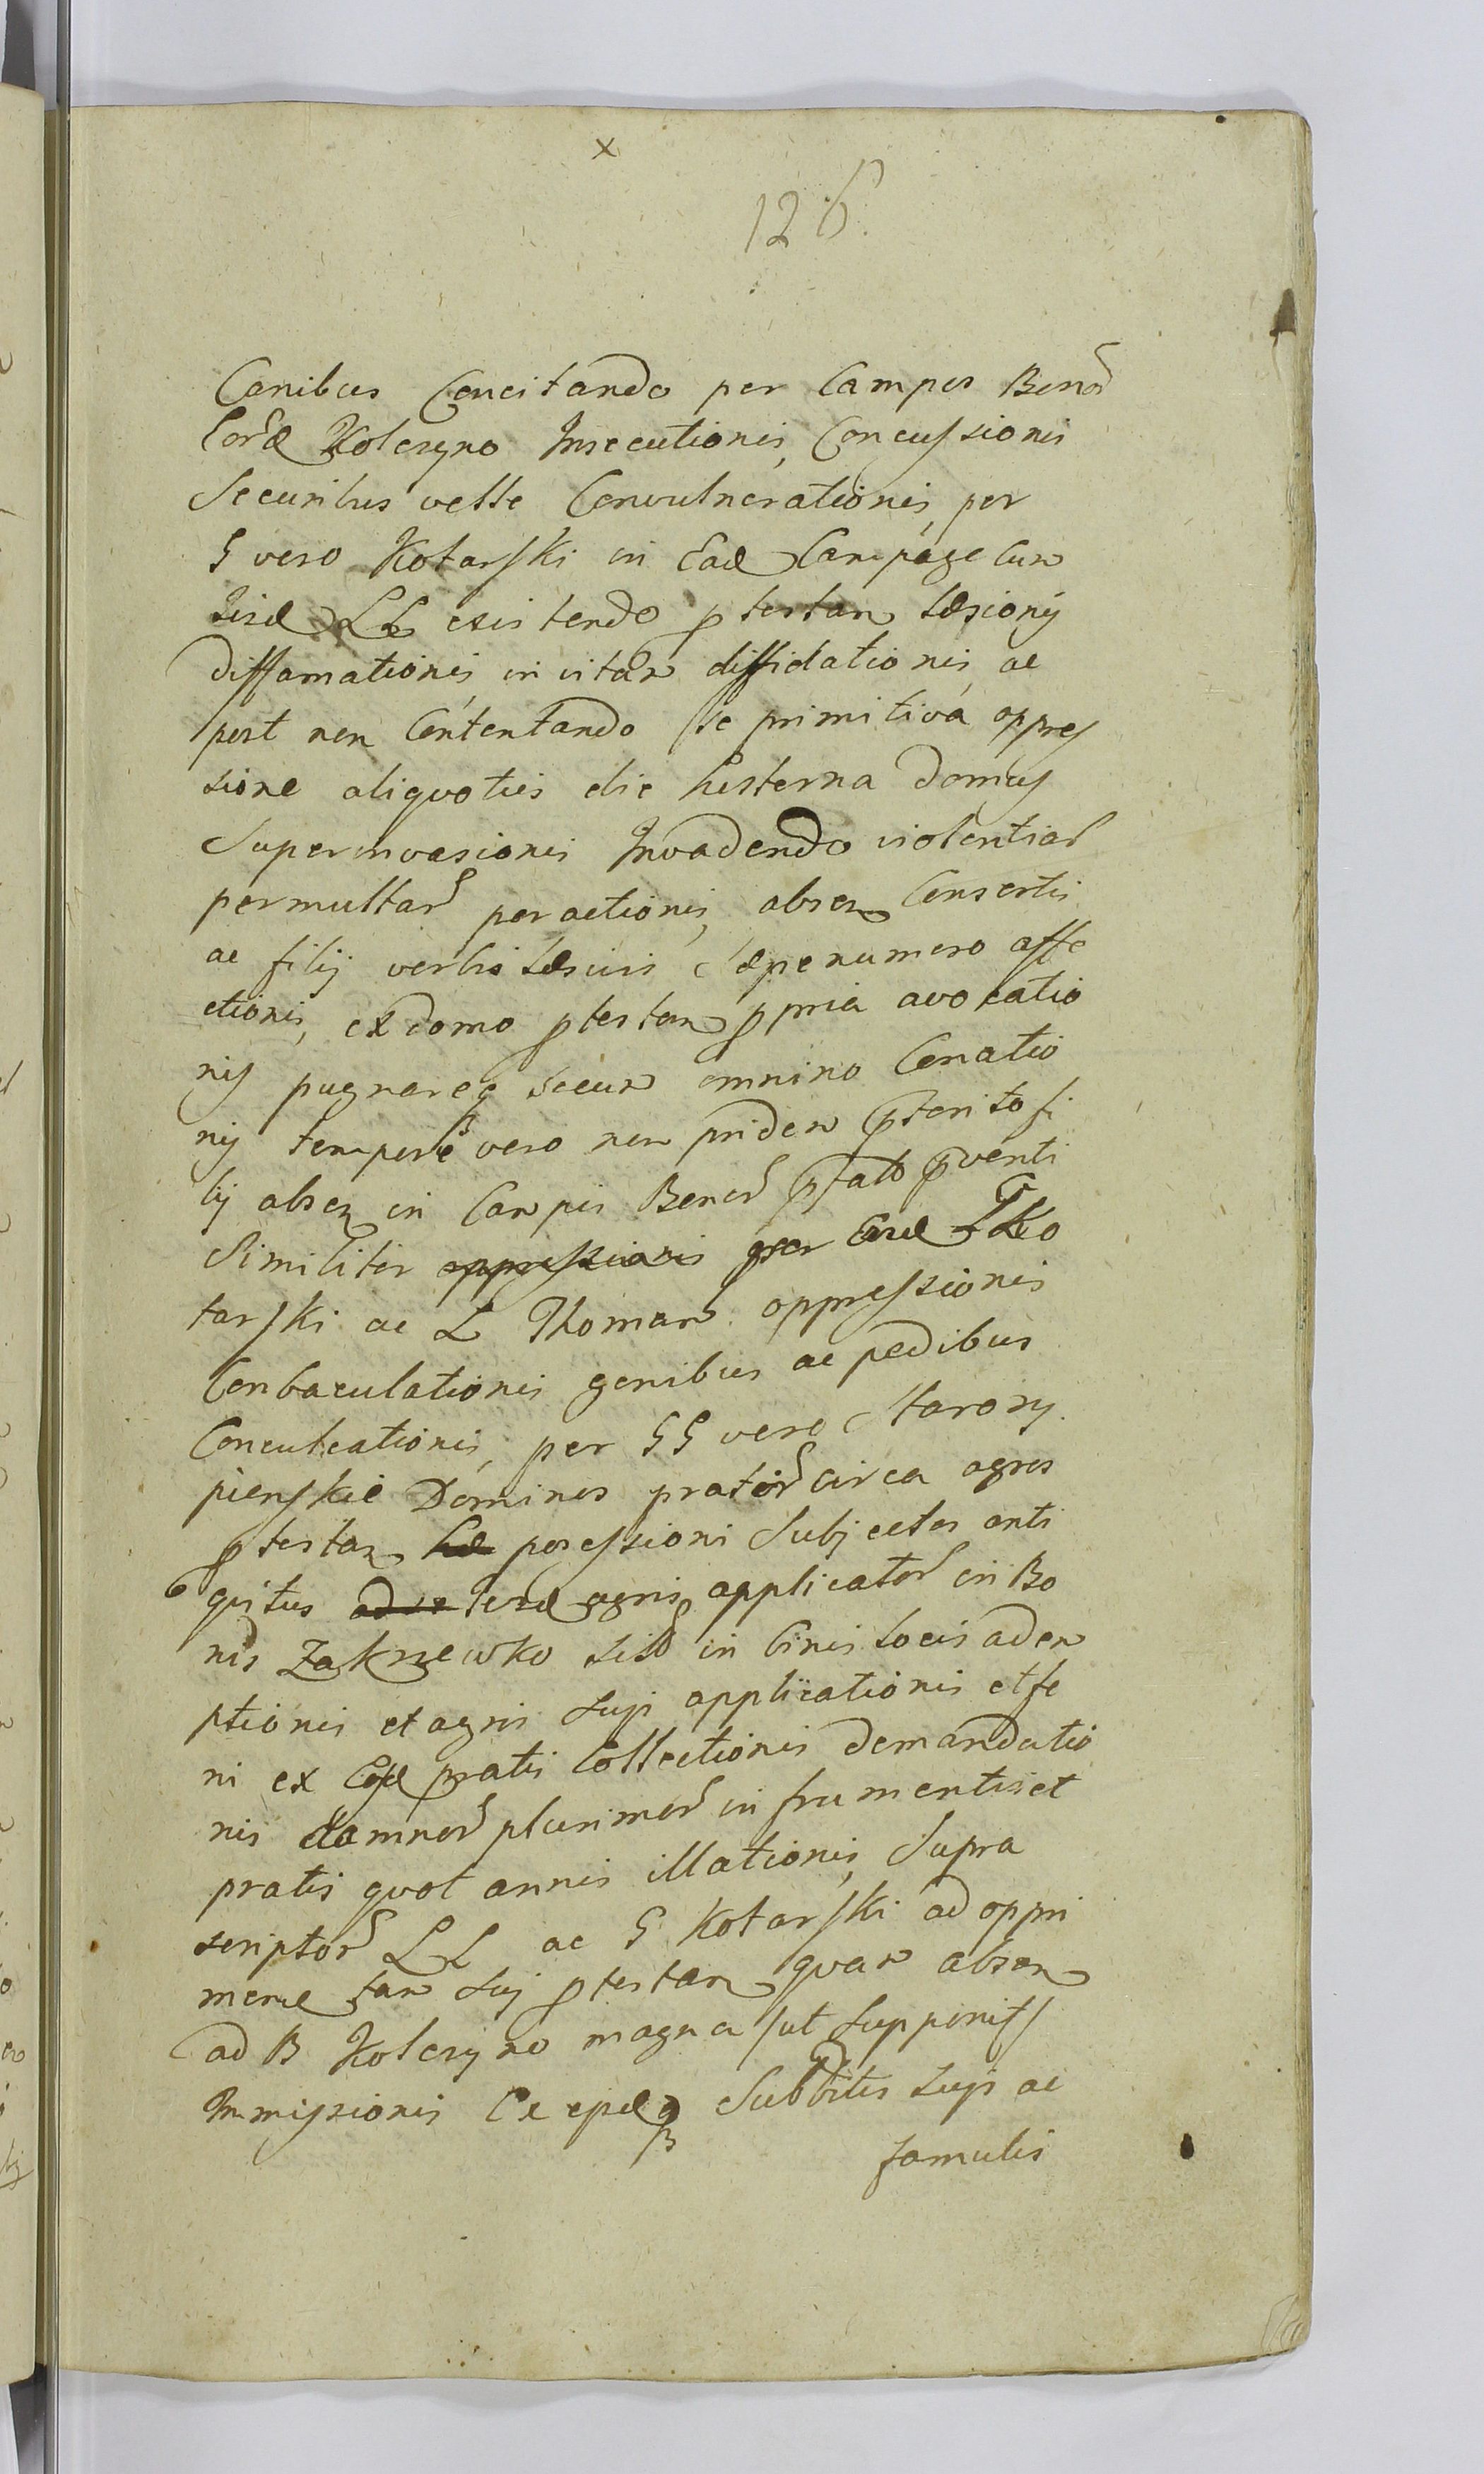 x
126.
Canibus Concitando per Campos Bonor
Eord Kolczyno Insecutionis, Concussionis
Securibus velle Convulnerationis, per
G vero Kotarski in Ead Campage cum
LL existendo ptestan læsionis
diffamationis, in vitam diffidationis, ac
post non Contentando se primitiva oppres
sione aliquoties die hesterna domus
Superinvasionis Invadendo violentiar
permultar peractionis, absen Consortis
ac filij verbis læsivis sæpenumero affe
ctionis, ex domo ptestan ppria avocatio
nis pugnareq secum omnino Conatio
nis tempore vero non pridem pterito fi
lij absen in Campis Bonor pfato pventi
Similiter oppressionis per G Ko
tarski ac L Thomam oppressionis
Conbaculationis genibus ac pedibus
Conculcationis, per GG vero Starozy
pienskie Dominos prator circa agros
ptestan possessioni Subjectos anti
quitus agris applicator in Bo
nis Zakrzewko in binis locis adem
ptionis et agris suis applicationis et fe
ni ex pratis Collectionis demandatio
nis damnor plurimor in frumentis et
pratis quot annis illationis, Supra
scriptor LL ac G Kotarski ad oppri
mend tam sui ptestan quam absen
ad B Kolczyno magna ut
Immissionis Subditis suis ac
famulis